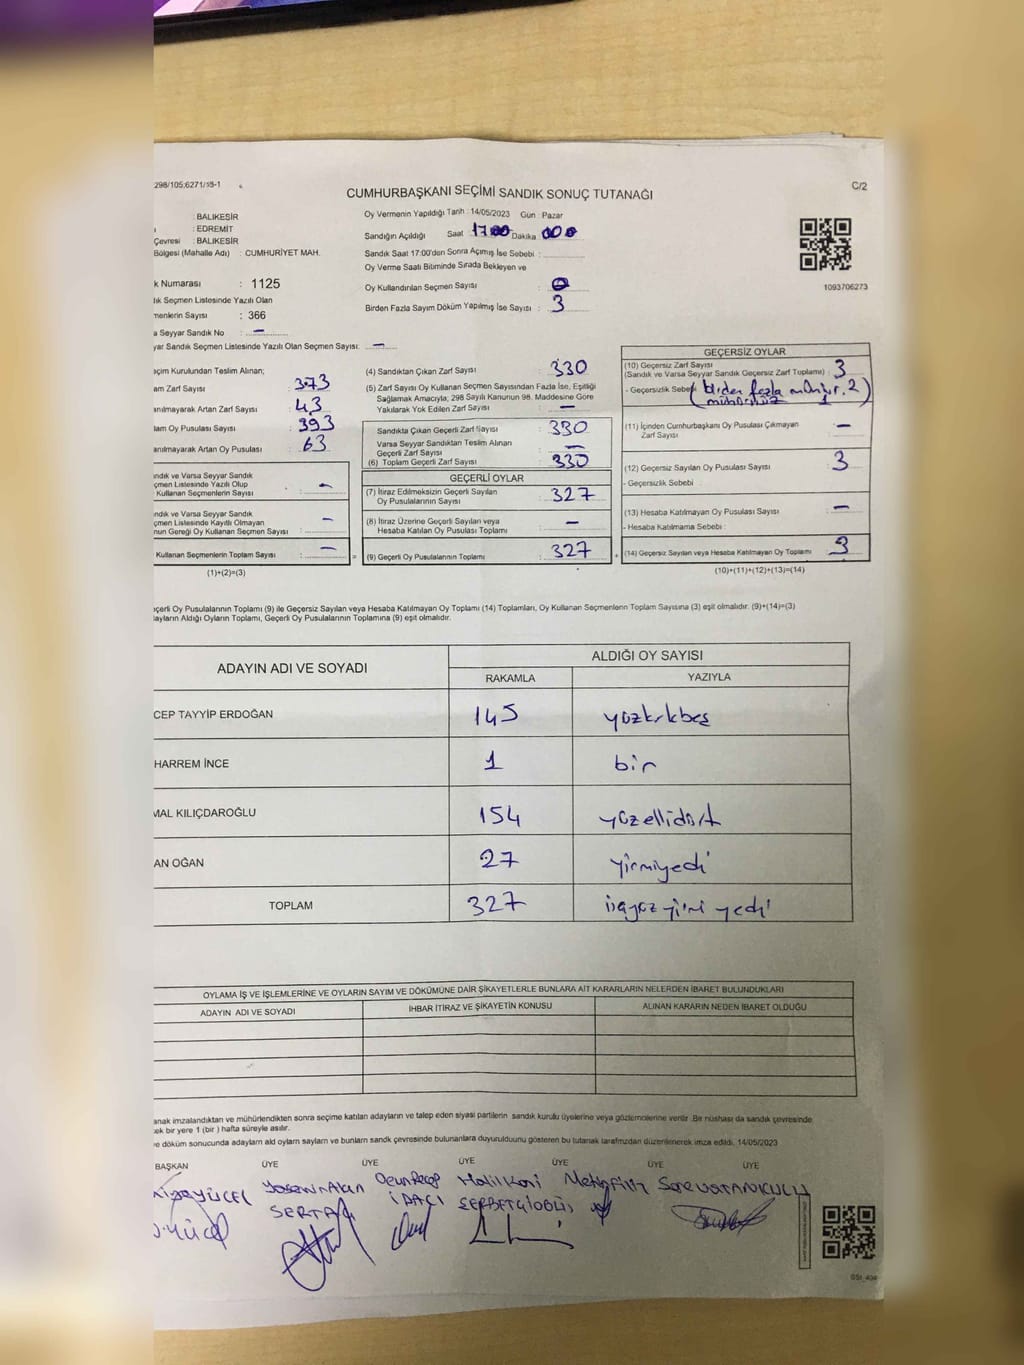 298/105;6271/sb-1
C/2
CUMHURBAŞKANI SEÇİMİ SANDIK SONUÇ TUTANAĞI
: BALIKESİR
: EDREMİT
Çevresi : BALIKESİR
Bölgesi (Mahalle Adı) : CUMHURİYET MAH.
k Numarası : 1125
lık Seçmen Listesinde Yazılı Olan
menlerin Sayısı : 366
a Seyyar Sandık No : –
yar Sandık Seçmen Listesinde Yazılı Olan Seçmen Sayısı: –
Oy Vermenin Yapıldığı Tarih : 14/05/2023 Gün : Pazar
Sandığın Açıldığı Saat 17:00 Dakika
Sandık Saat 17:00'den Sonra Açımış İse Sebebi :
Oy Verme Saati Bitiminde Sırada Bekleyen ve
Oy Kullandırılan Seçmen Sayısı : 0
Birden Fazla Sayım Döküm Yapılmış İse Sayısı : 3
1093706273
eçim Kurulundan Teslim Alınan;
am Zarf Sayısı : 373
anılmayarak Artan Zarf Sayısı : 43
lam Oy Pusulası Sayısı : 393
anılmayarak Artan Oy Pusulası : 63
ndık ve Varsa Seyyar Sandık
çmen Listesinde Yazılı Olup
Kullanan Seçmenlerin Sayısı : –
ndık ve Varsa Seyyar Sandık
çmen Listesinde Kayıtlı Olmayan
nun Gereği Oy Kullanan Seçmen Sayısı : –
Kullanan Seçmenlerin Toplam Sayısı : –
(1)+(2)=(3)
(4) Sandıktan Çıkan Zarf Sayısı : 330
(5) Zarf Sayısı Oy Kullanan Seçmen Sayısından Fazla İse, Eşitliği
Sağlamak Amacıyla; 298 Sayılı Kanunun 98. Maddesine Göre
Yakılarak Yok Edilen Zarf Sayısı : –
Sandıkta Çıkan Geçerli Zarf Sayısı : 330
Varsa Seyyar Sandıktan Teslim Alınan
Geçerli Zarf Sayısı : –
(6) Toplam Geçerli Zarf Sayısı : 330
GEÇERLİ OYLAR
(7) İtiraz Edilmeksizin Geçerli Sayılan
Oy Pusulalarının Sayısı : 327
(8) İtiraz Üzerine Geçerli Sayılan veya
Hesaba Katılan Oy Pusulası Toplamı : –
= (9) Geçerli Oy Pusulalarının Toplamı : 327
GEÇERSİZ OYLAR
(10) Geçersiz Zarf Sayısı
(Sandık ve Varsa Seyyar Sandık Geçersiz Zarf Toplamı) : 3
- Geçersizlik Sebebi : (birden fazla mühür. 2
mühürsüz 1)
(11) İçinden Cumhurbaşkanı Oy Pusulası Çıkmayan
Zarf Sayısı : –
(12) Geçersiz Sayılan Oy Pusulası Sayısı : 3
- Geçersizlik Sebebi :
(13) Hesaba Katılmayan Oy Pusulası Sayısı : –
- Hesaba Katılmama Sebebi :
+ (14) Geçersiz Sayılan veya Hesaba Katılmayan Oy Toplamı : 3
(10)+(11)+(12)+(13)=(14)
çerli Oy Pusulalarının Toplamı (9) ile Geçersiz Sayılan veya Hesaba Katılmayan Oy Toplamı (14) Toplamları, Oy Kullanan Seçmenlerin Toplam Sayısına (3) eşit olmalıdır. (9)+(14)=(3)
layların Aldığı Oyların Toplamı, Geçerli Oy Pusulalarının Toplamına (9) eşit olmalıdır.
ADAYIN ADI VE SOYADI
ALDIĞI OY SAYISI
RAKAMLA YAZIYLA
CEP TAYYİP ERDOĞAN 145 yüzkırkbeş
HARREM İNCE 1 bir
MAL KILIÇDAROĞLU 154 yüzellidört
AN OĞAN 27 yirmiyedi
TOPLAM 327 üçyüz yirmi yedi
OYLAMA İŞ VE İŞLEMLERİNE VE OYLARIN SAYIM VE DÖKÜMÜNE DAİR ŞİKAYETLERLE BUNLARA AİT KARARLARIN NELERDEN İBARET BULUNDUKLARI
ADAYIN ADI VE SOYADI İHBAR İTİRAZ VE ŞİKAYETİN KONUSU ALINAN KARARIN NEDEN İBARET OLDUĞU
anak imzalandıktan ve mühürlendikten sonra seçime katılan adayların ve talep eden siyasi partilerin sandık kurulu üyelerine veya gözlemcilerine verilir. Bir nüshası da sandık çevresinde
ek bir yere 1 (bir) hafta süreyle asılır.
ve döküm sonucunda adayların ald oyların sayları ve bunların sandk çevresinde bulunanlara duyurulduunu gösteren bu tutanak tarafmzdan düzenlenerek imza edildi. 14/05/2023
BAŞKAN ÜYE ÜYE ÜYE ÜYE ÜYE ÜYE
YÜCEL Akın Halil
SERTAÇ
GSI_404